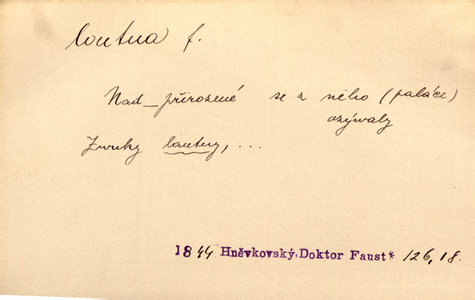 loutna f.
Nad_přirozené se z něho (paláce)
ozývaly
Zvuky loutny, ...
1844 Hněvkovský, Doktor Faust* 126, 18.